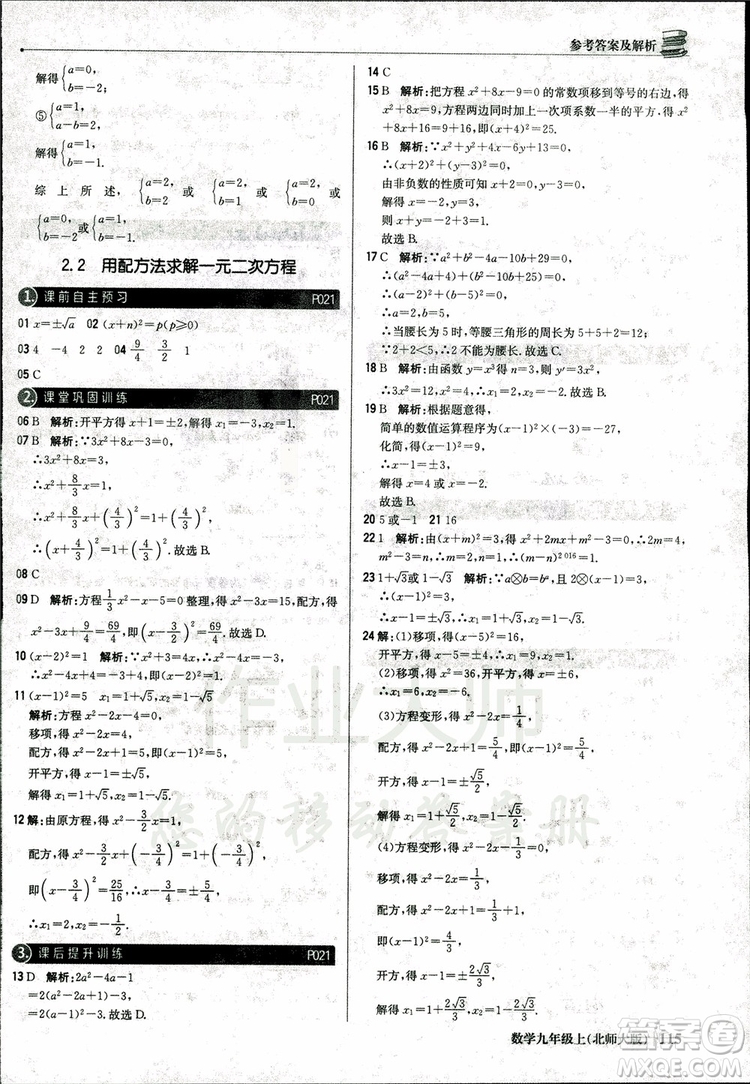 参考答案及解析
解得{a=0, b=-2;
⑤{a+b=2, a-b=2,
解得{a=2, b=0.
综上所述,{a=2, b=2或{a=-2, b=0或{a=2, b=0或
{a=0, b=-2或{a=2, b=0.
2.2 用配方法求解一元二次方程
1. 课前自主预习 P021
01 x=±√a 02 (x+n)²=p(p≥0)
03 4 -4 2 2 04 9/4 3/2
05 C
2. 课堂巩固训练 P021
06 B 解析:开平方得x+1=±2,解得x₁=1,x₂=-3.
07 B 解析:∵3x²+8x-3=0,
∴3x²+8x=3,
∴x²+8/3x=1,
∴x²+8/3x+(4/3)²=1+(4/3)²,
∴(x+4/3)²=1+(4/3)².故选B.
08 C
09 D 解析:方程1/3x²-x-5=0整理,得x²-3x=15,配方,得
x²-3x+9/4=69/4,即(x-3/2)²=69/4.故选D.
10 (x-2)²=1 解析:∵x²-4x+3=0,∴x²-4x=-3,
∴x²-4x+4=-3+4,∴(x-2)²=1.
11 (x-1)²=5 x₁=1+√5,x₂=1-√5
解析:方程x²-2x-4=0,
移项,得x²-2x=4,
配方,得x²-2x+1=5,即(x-1)²=5,
开平方,得x-1=±√5,
解得x₁=1+√5,x₂=1-√5.
12 解:由原方程,得x²-3/2x=1,
配方,得x²-3/2x+(-3/4)²=1+(-3/4)²,
即(x-3/4)²=25/16,
∴x₁=2,x₂=-1/2.
3. 课后提升训练 P021
13 D 解析:2a²-4a-1
=2(a²-2a+1)-3,
=2(a-1)²-3.
14 C
15 B 解析:把方程x²+8x-9=0的常数项移到等号的右边,得
x²+8x=9,方程两边同时加上一次项系数一半的平方,得x²+
8x+16=9+16,即(x+4)²=25.
16 B 解析:∵x²+y²+4x-6y+13=0,
∴(x+2)²+(y-3)²=0,
由非负数的性质可知x+2=0,y-3=0,
解得x=-2,y=3,
则x+y=-2+3=1.
故选B.
17 C 解析:∵a²-4a-5=0,
∴(a²-4a+4)-4-5=0,
∴(a-2)²=9,
∴a=5,
∴当腰长为5时,等腰三角形的周长为5+5+2=12.
∵2+2<5,∴2不能为腰长.故选C.
18 B 解析:由函数y=x³得n=3,则y′=3x²,
∴3x²=12,则x=±2.故选B.
19 B 解析:根据题意得,
简单的数值运算程序为(x-1)²×(-3)=-9,
化简,得(x-1)²=3,
∴x-1=±√3,
解得x=1±√3.
故选B.
20 5或-1 21 16
22 1 解析:由(x+m)²=3,得x²+2mx+m²-3=0,∴2m=4,
m²-3=n,∴m=2,n=1,∴(m-n)²⁰¹⁶=1.
23 1+√3或1-√3 解析:∵a⊗b=bᵃ,且2⊗(x-1)=3,
∴(x-1)²=3,
∴x-1=±√3,∴x₁=1+√3,x₂=1-√3.
24 解:(1)移项,得(x-5)²=16,
开平方,得x-5=±4,∴x₁=1,x₂=9.
(2)移项,得x²=36,开平方,得x=±6,
∴x₁=6,x₂=-6.
(3)方程变形,得x²-2x=1/4,
配方,得x²-2x+1=5/4,即(x-1)²=5/4,
开方,得x-1=±√5/2,
解得x₁=1+√5/2,x₂=1-√5/2.
(4)方程变形,得x²-2x-1/3=0,
移项,得x²-2x=1/3,
配方,得x²-2x+1=4/3,即(x-1)²=4/3,
开方,得x-1=±2√3/3,
解得x₁=1+2√3/3,x₂=1-2√3/3.
数学九年级上(北师大版) 115
作业大师
您的移动答案册
答案圈
MXQE.COM